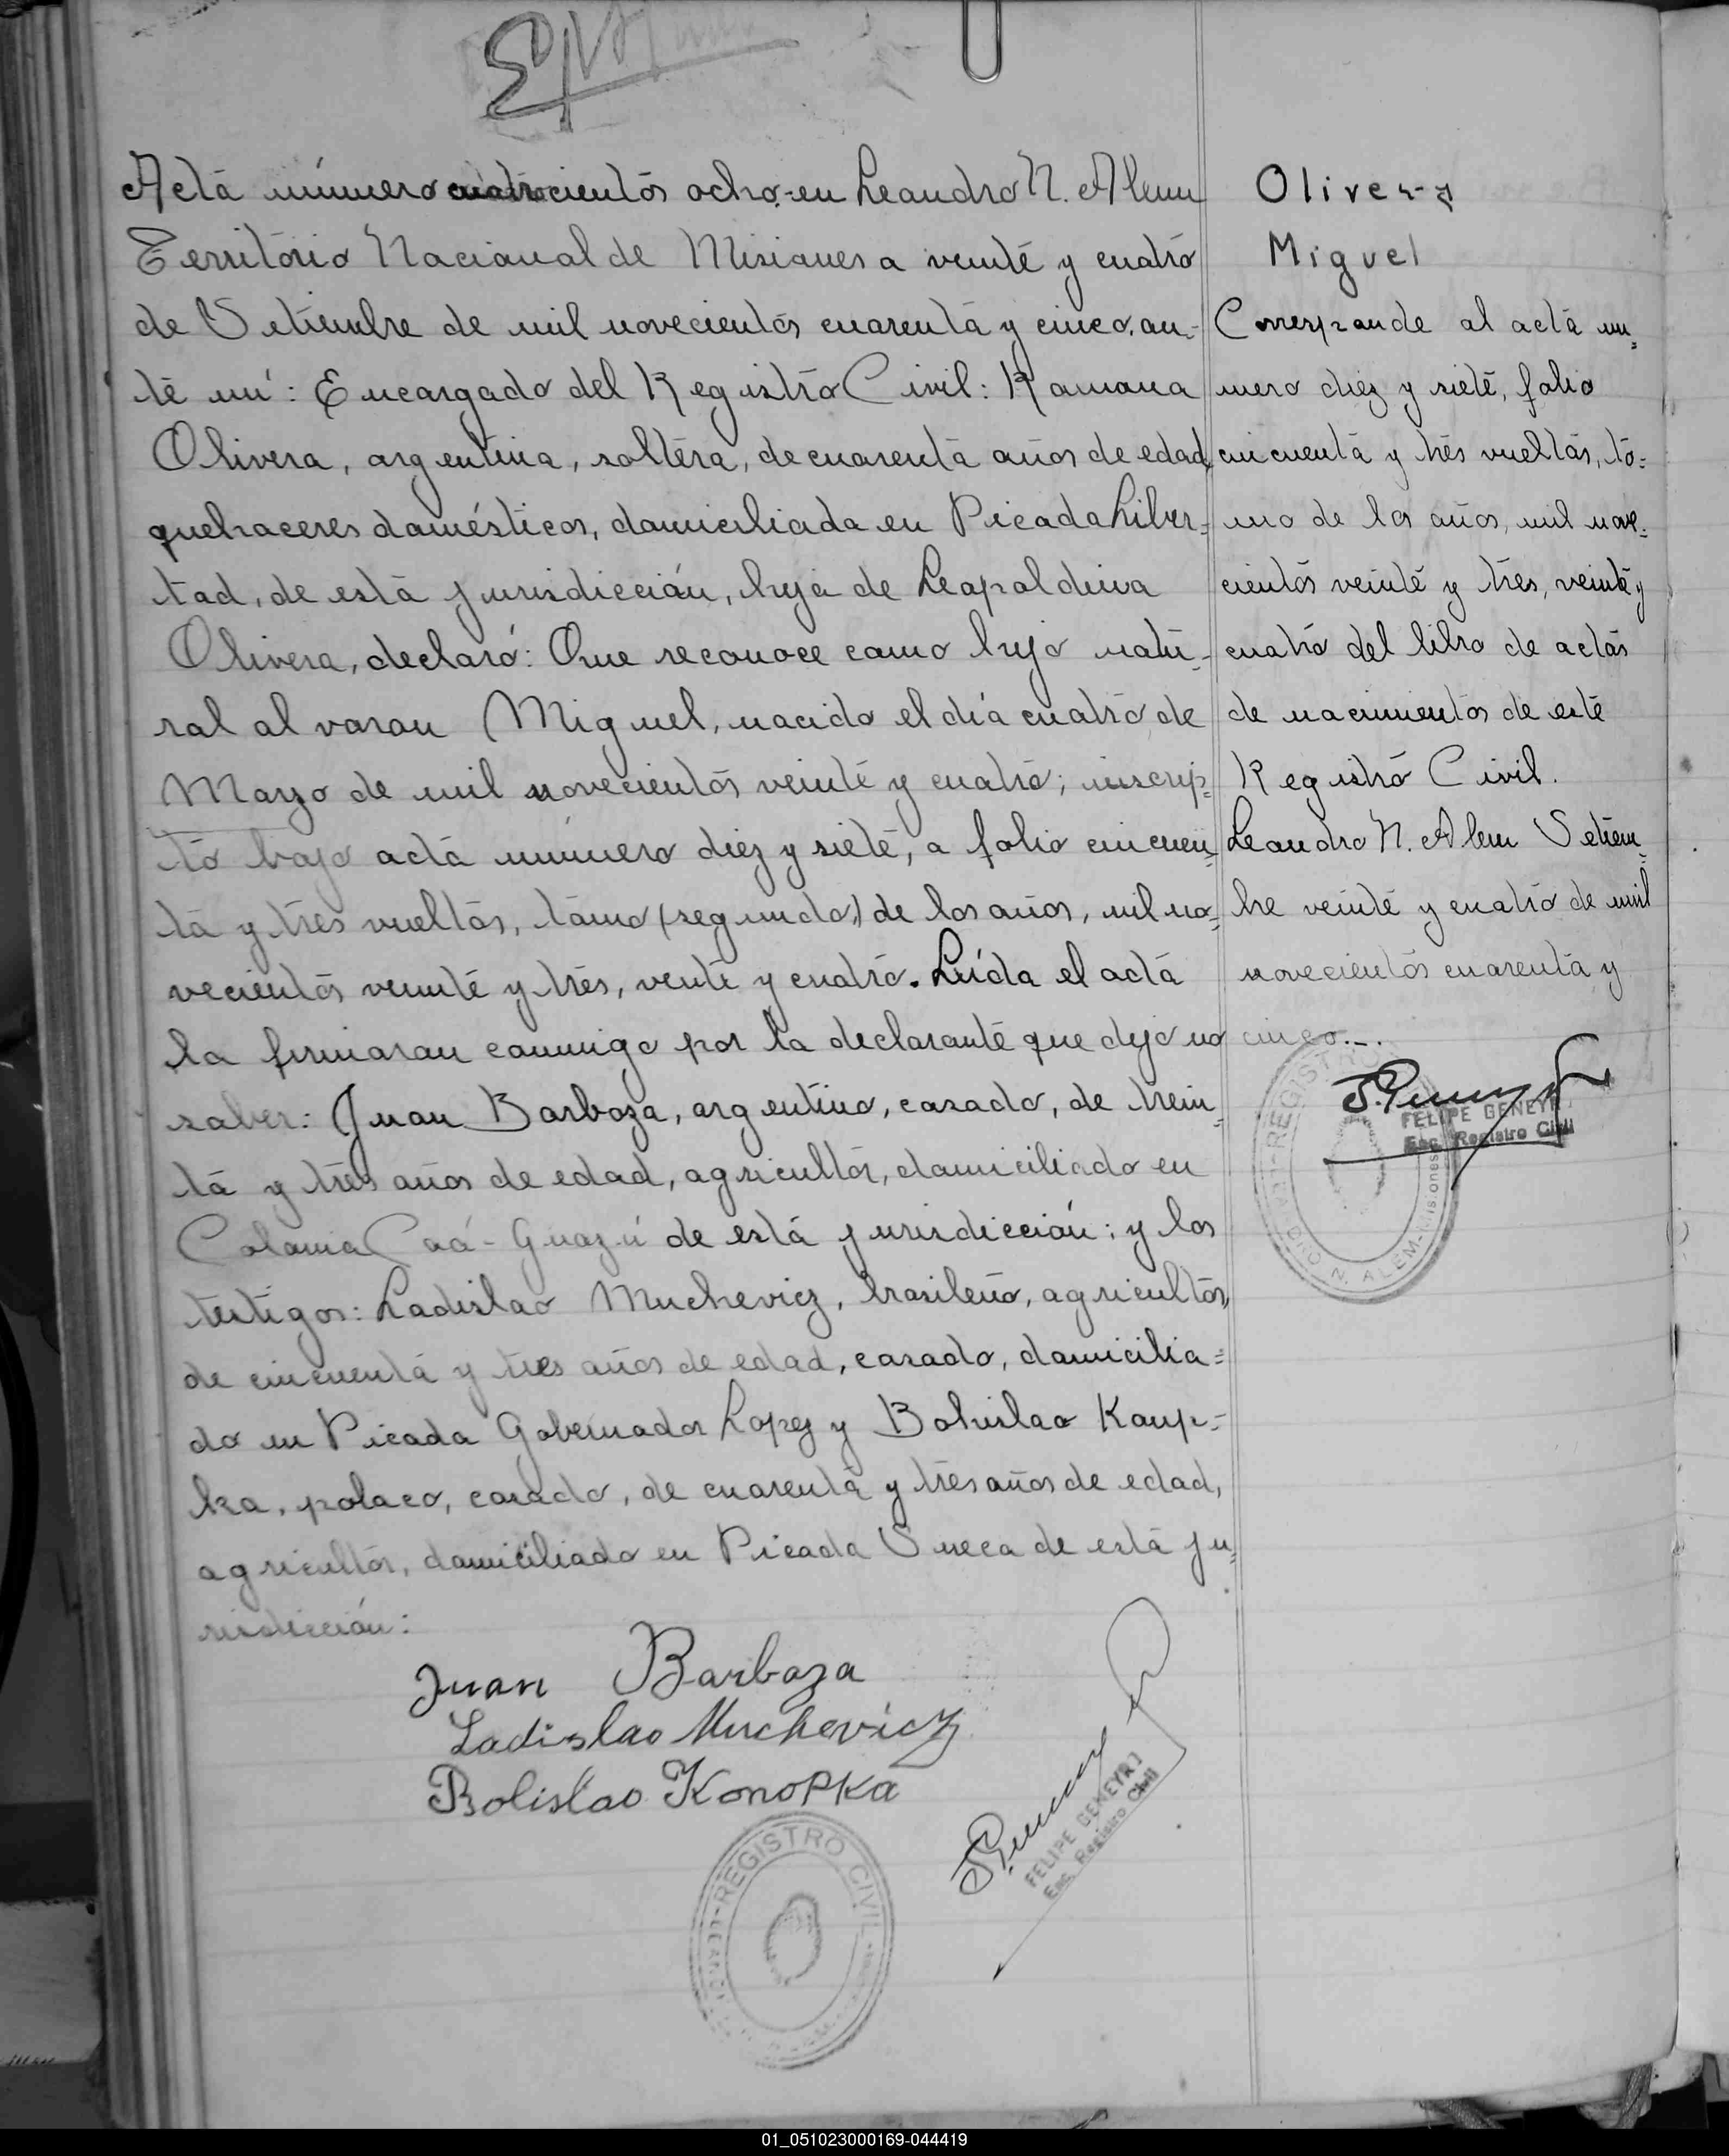 Acta número cuatrocientos ocho-en Leandro N. Alem
Territorio Nacional de Misiones a veinte y cuatro
de Setiembre de mil novecientos cuarenta y cinco, an-
te mí: Encargado del Registro Civil: Ramona
Olivera, argentina, soltera, de cuarenta años de edad,
quehaceres domésticos, domiciliada en Picada Liber-
tad, de esta jurisdicción, hija de Leopoldina
Olivera, declaró: Que reconoce como hijo natu-
ral al varon Miguel, nacido el día cuatro de
Marzo de mil novecientos veinte y cuatro; inscrip=
to bajo acta número diez y siete, a folio cincuen=
ta y tres vueltas, tomo (segundo) de los años, mil no=
vecientos veinte y tres, veinte y cuatro. Leída el acta
la firmaran conmigo por la declarante que dijo no
saber: Juan Barboza, argentino, casado, de trein-
ta y tres años de edad, agricultor, domiciliado en
Colonia Caá-Guazú de esta jurisdicción; y los
testigos: Ladislao Muchevicz, brasileño, agricultor,
de cincuenta y tres años de edad, casado, domicilia=
do en Picada Gobernador Lopez y Bolislao Konp-
ka, polaco, casado, de cuarenta y tres años de edad,
agricultor, domiciliado en Picada Sueca de esta ju=
risdicción:
Juan Barboza
Ladislao Muchevicz
Bolislao Konopka
FELIPE GENEYRI
Enc. Registro Civil
REGISTRO CIVIL
Olivera
Miguel
Corresponde al acta nu=
mero diez y siete, folio
cincuenta y tres vueltas, to=
mo de los años, mil nove=
cientos veinte y tres, veinte y
cuatro del libro de actas
de nacimientos de este
Registro Civil.
Leandro N. Alem Setiem=
bre veinte y cuatro de mil
novecientos cuarenta y
cinco.-.
FELIPE GENEYRI
Enc. Registro Civil
REGISTRO
DRO N. ALEM-Misiones
01_051023000169-044419